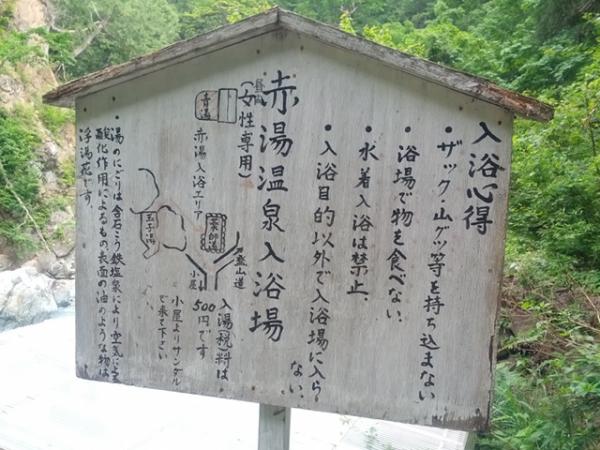 入浴心得
・ザック・山グツ等を持ち込まない
・浴場で物を食べない.
・水着入浴は禁止.
・入浴目的以外で入浴場に入らない.
赤湯温泉入浴場
登山道
小屋
入湯(税)料は
500円です
小屋よりサンダル
で来て下さい
(女性専用)
青湯
赤湯入浴エリア
薬師湯
玉子湯
・湯のにごりは含石こう鉄塩泉により空気による
酸化作用によるもの表面の油のような物は
浮湯花です.